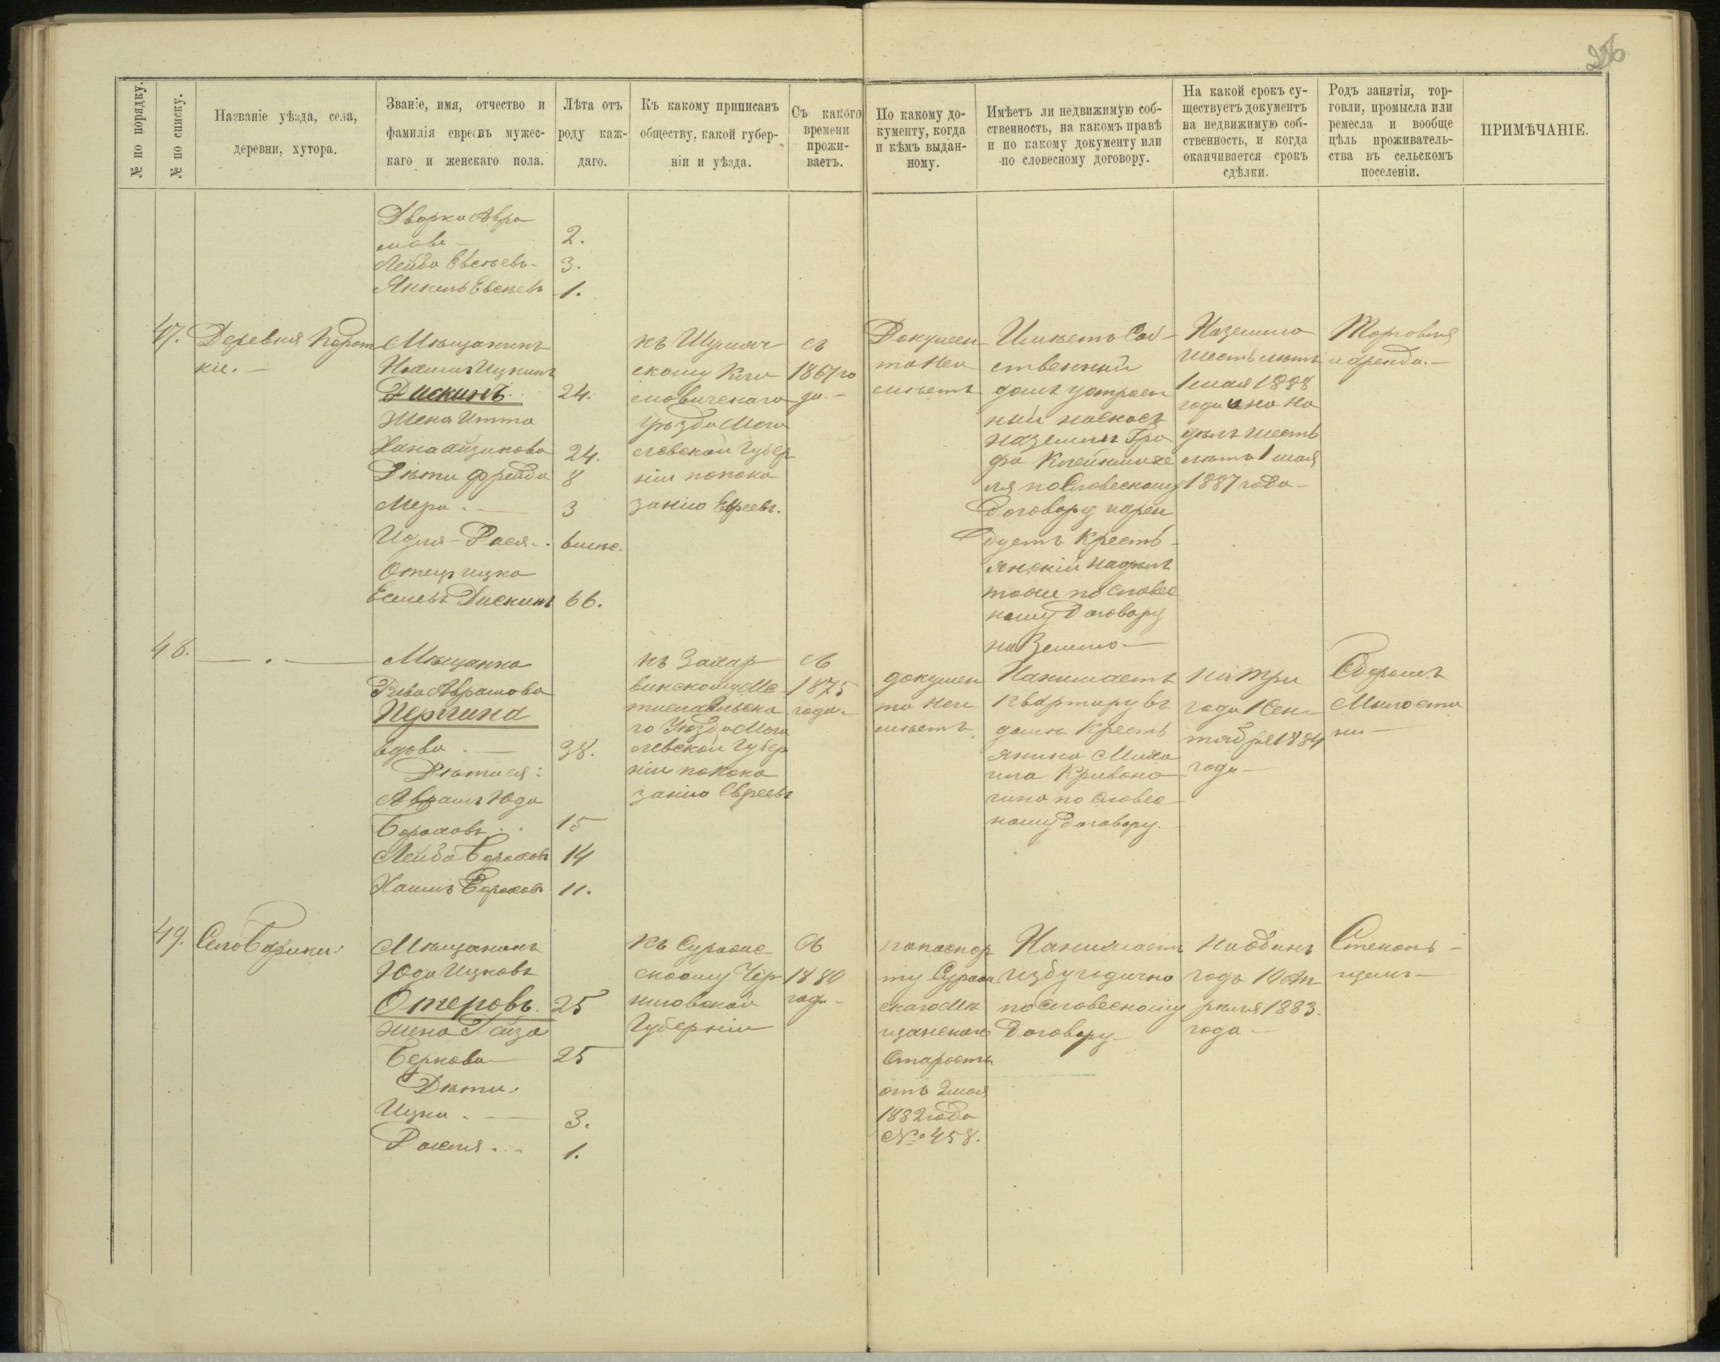 226
№ по порядку.
№ по списку.
Названіе уѣзда, села,
деревни, хутора.
Званіе, имя, отчество и
фамилія евреевъ мужес-
каго и женскаго пола.
Лѣта отъ
роду каж-
даго.
Къ какому приписанъ
обществу, какой губер-
ніи и уѣзда.
Съ какого
времени
прожи-
ваетъ.
По какому до-
кументу, когда
и кѣмъ выдан-
ному.
Имѣетъ ли недвижимую соб-
ственность, на какомъ правѣ
и по какому документу или
по словесному договору.
На какой срокъ су-
ществуетъ документъ
на недвижимую соб-
ственность, и когда
оканчивается срокъ
сдѣлки.
Родъ занятія, тор-
говли, промысла или
ремесла и вообще
цѣль проживатель-
ства въ сельскомъ
поселеніи.
ПРИМѢЧАНІЕ.
Дворка Абра
мова — 2.
Лейба Евсѣевъ - 3.
Янкель Евсѣевъ 1.
47.
Деревня
кіе. —
Мѣщанинъ
Ицкинъ
Дискинъ. 24.
Жена Итта
Хана Айзикова 24.
Дѣти Фрейда 8
Мера. — 3
Рася. - 6 мѣс.
Отецъ Ицко
Дискинъ 66.
къ Шумяч
скому Кли
мовичскаго
уѣзда Моги
левской Губер
ніи по пока
занію Евреевъ.
съ
1867 го
да. -
Докумен
та не и
мѣетъ
Имѣетъ Соб-
ственный
домъ устроен
ный
на земли Гра
фа Клейнмихе
ля по Словесному
Договору и арен
дуетъ Кресть-
янскій Надѣлъ
тоже по словес
ному Договору
на Землю —
На землю
шесть лѣтъ
1 мая 1888
года а на На
дѣлъ шесть
лѣтъ 1 мая
1887 года -
Торговля
и аренда. -
48.
— . —
Мѣщанка
Рива Абрамова
Пергина
вдова. — 38.
Дѣти ея:
Абрамъ Юда
Бороховъ.. 15
Лейба Бороховъ 14
Хаимъ Бороховъ 11.
къ Захар
винскому Мс
тиславльска
го Уѣзда Моги
левской Губер
ніи по пока
занію Евреевъ
съ
1875
года -
докумен
та не и
мѣетъ.
Нанимаетъ
квартиру въ
домѣ Кресть
янина Миха
ила Кривоно
по словес-
ному договору.
на три
года 1 Сен-
тября 1884
года —
Сборомъ
Милосты
ни —
49.
Село
Мѣщанинъ
Юда Ицковъ
Отеровъ. 25
жена
Беркова — 25
Дѣти:
Ицка. — 3.
1.
къ Суражс
скому Чер
ниговской
Губерніи
съ
1880
года -
по паспор
ту Сураж
скаго Мѣ
щанскаго
Старосты
отъ 2 мая
1882 года
№ 458.
Нанимаетъ
избу годично
по Словесному
Договору —
на одинъ
годъ 10 Ап
рѣля 1883.
года —
Стеколь-
щикъ —